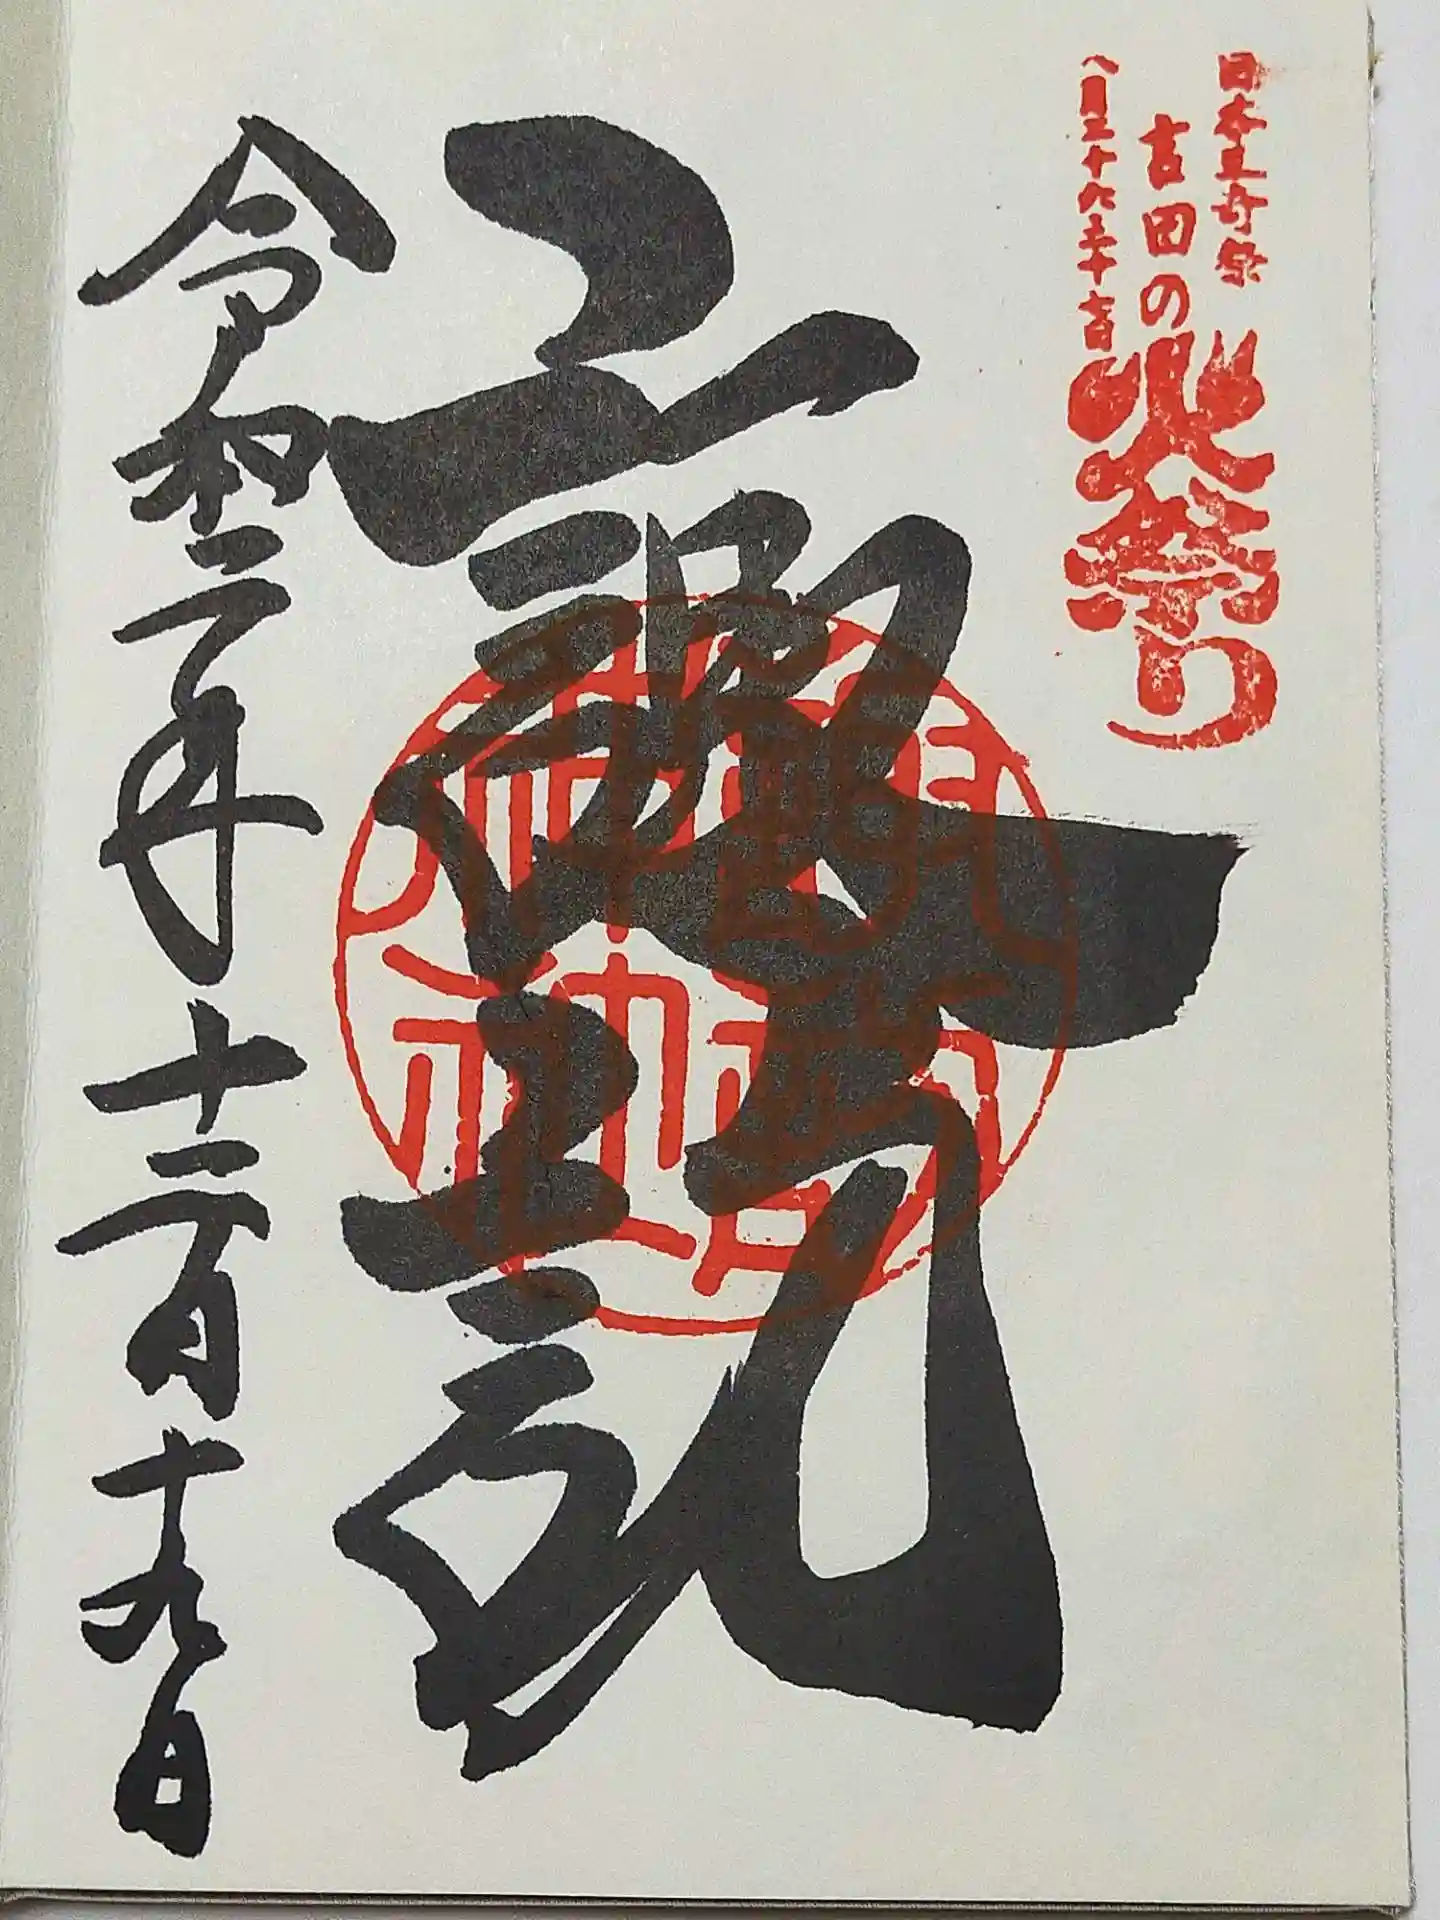 日本三奇祭
吉田の火祭り
八月二十六二十七日
諏訪
令和二年十二月十九日